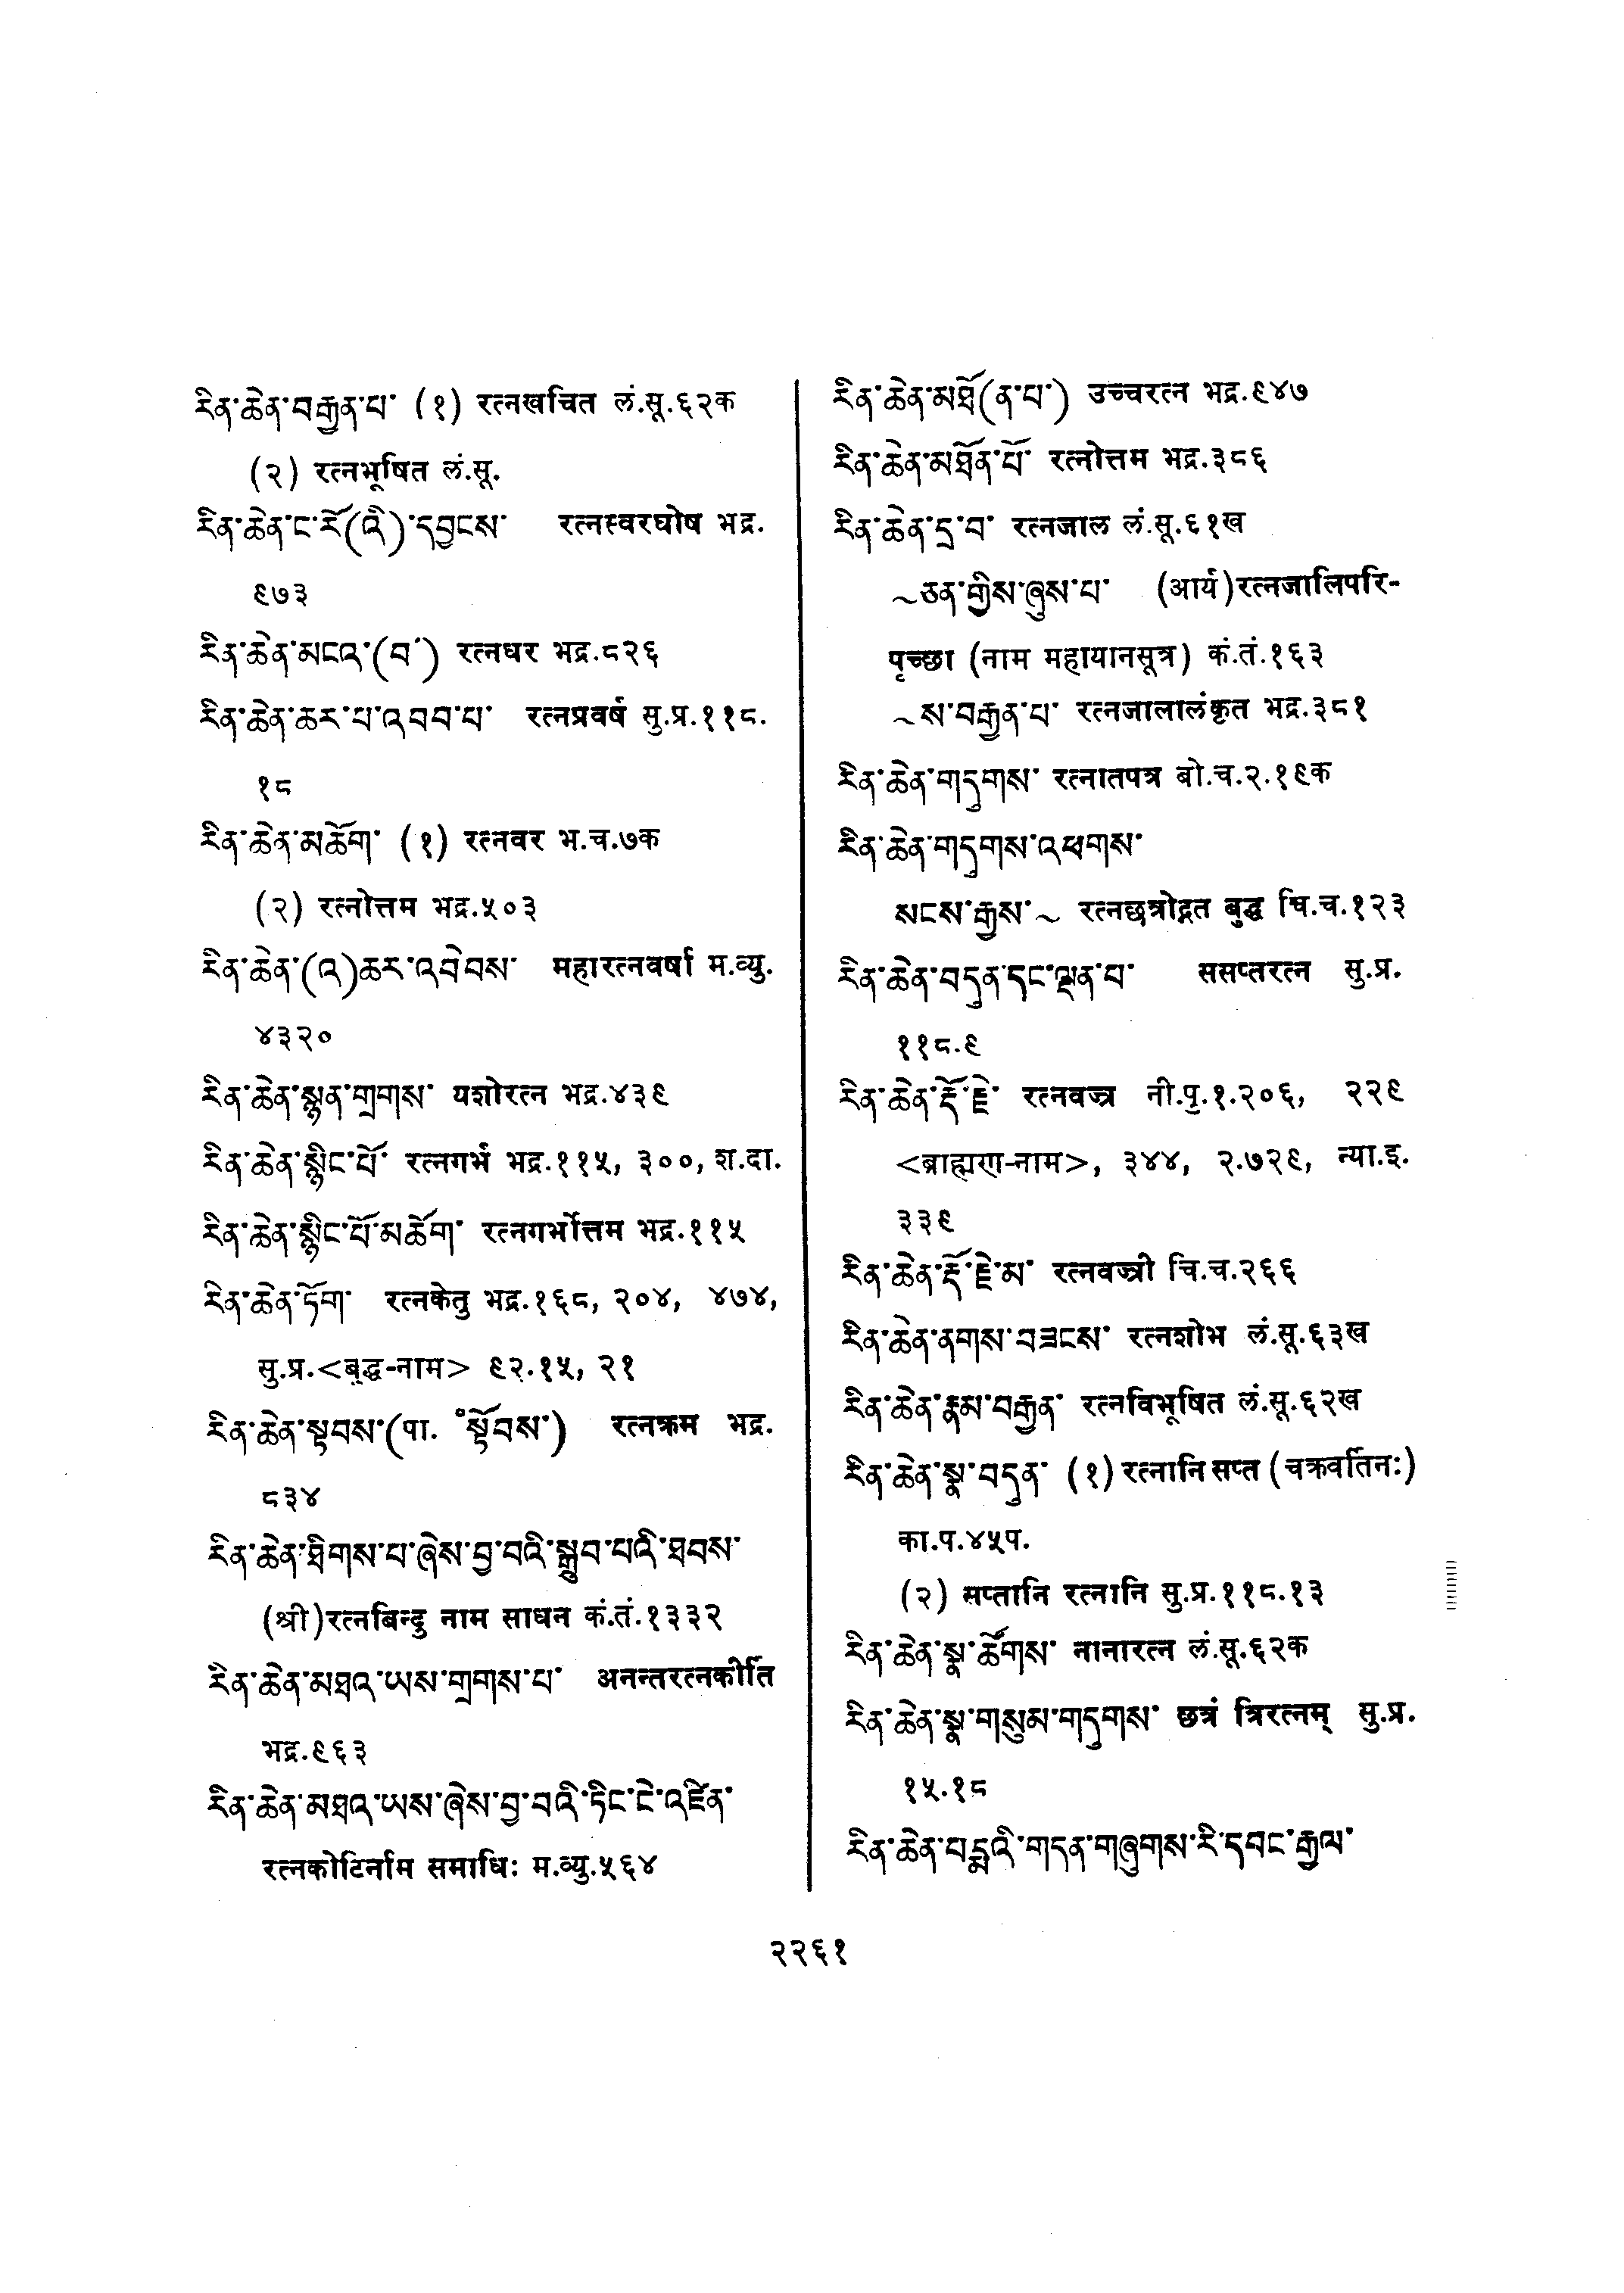 རིན་ཆེན་བརྒྱན་པ་ (१) रत्नखचित लं.सू.६२क
(२) रत्नभूषित लं.सू.
རིན་ཆེན་ང་རོ(འི)་དབྱངས་ रत्नस्वरघोष भद्र.
९७३
རིན་ཆེན་མངའ་(བ་) रत्नधर भद्र.८२६
རིན་ཆེན་ཆར་པ་འབབ་པ་ रत्नप्रवर्ष सु.प्र.११८.
१८
རིན་ཆེན་མཆོག་ (१) रत्नवर भ.च.७क
(२) रत्नोत्तम भद्र.५०३
རིན་ཆེན་(འ)ཆར་འབེབས་ महारत्नवर्षा म.व्यु.
४३२०
རིན་ཆེན་སྙན་གྲགས་ यशोरत्न भद्र.४३९
རིན་ཆེན་སྙིང་པོ་ रत्नगर्भ भद्र.११५, ३००, श.दा.
རིན་ཆེན་སྙིང་པོ་མཆོག་ रत्नगर्भोत्तम भद्र.११५
རིན་ཆེན་ཏོག་ रत्नकेतु भद्र.१६८, २०४, ४७४,
सु.प्र.<बुद्ध-नाम> ९२.१५, २१
རིན་ཆེན་སྟབས་(पा. ॰སྟོབས་) रत्नक्रम भद्र.
८३४
རིན་ཆེན་ཐིགས་པ་ཞེས་བྱ་བའི་སྒྲུབ་པའི་ཐབས་
(श्री)रत्नबिन्दु नाम साधन कं.तं.१३३२
རིན་ཆེན་མཐའ་ཡས་གྲགས་པ་ अनन्तरत्नकीर्ति
भद्र.९६३
རིན་ཆེན་མཐའ་ཡས་ཞེས་བྱ་བའི་ཏིང་ངེ་འཛིན་
रत्नकोटिर्नाम समाधिः म.व्यु.५६४
རིན་ཆེན་མཐོ(ན་པ་) उच्चरत्न भद्र.९४७
རིན་ཆེན་མཐོན་པོ་ रत्नोत्तम भद्र.३८६
རིན་ཆེན་དྲ་བ་ रत्नजाल लं.सू.६१ख
~ཅན་གྱིས་ཞུས་པ་ (आर्य)रत्नजालिपरि-
पृच्छा (नाम महायानसूत्र) कं.तं.१६३
~ས་བརྒྱན་པ་ रत्नजालालंकृत भद्र.३८१
རིན་ཆེན་གདུགས་ रत्नातपत्र बो.च.२.१९क
རིན་ཆེན་གདུགས་འཕགས་
སངས་རྒྱས་~ रत्नछत्रोद्गत बुद्ध चि.च.१२३
རིན་ཆེན་བདུན་དང་ལྡན་པ་ ससप्तरत्न सु.प्र.
११८.९
རིན་ཆེན་རྡོ་རྗེ་ रत्नवज्र नी.पु.१.२०६, २२९
<ब्राह्मण-नाम>, ३४४, २.७२९, न्या.इ.
३३९
རིན་ཆེན་རྡོ་རྗེ་མ་ रत्नवज्री चि.च.२६६
རིན་ཆེན་ནགས་བཟངས་ रत्नशोभ लं.सू.६३ख
རིན་ཆེན་རྣམ་བརྒྱན་ रत्नविभूषित लं.सू.६२ख
རིན་ཆེན་སྣ་བདུན་ (१) रत्नानि सप्त (चक्रवर्तिनः)
का.प.४५प.
(२) सप्तानि रत्नानि सु.प्र.११८.१३
རིན་ཆེན་སྣ་ཚོགས་ नानारत्न लं.सू.६२क
རིན་ཆེན་སྣ་གསུམ་གདུགས་ छत्रं त्रिरत्नम् सु.प्र.
१५.१८
རིན་ཆེན་པདྨའི་གདན་གཞུགས་རི་དབང་རྒྱལ་
२२६१